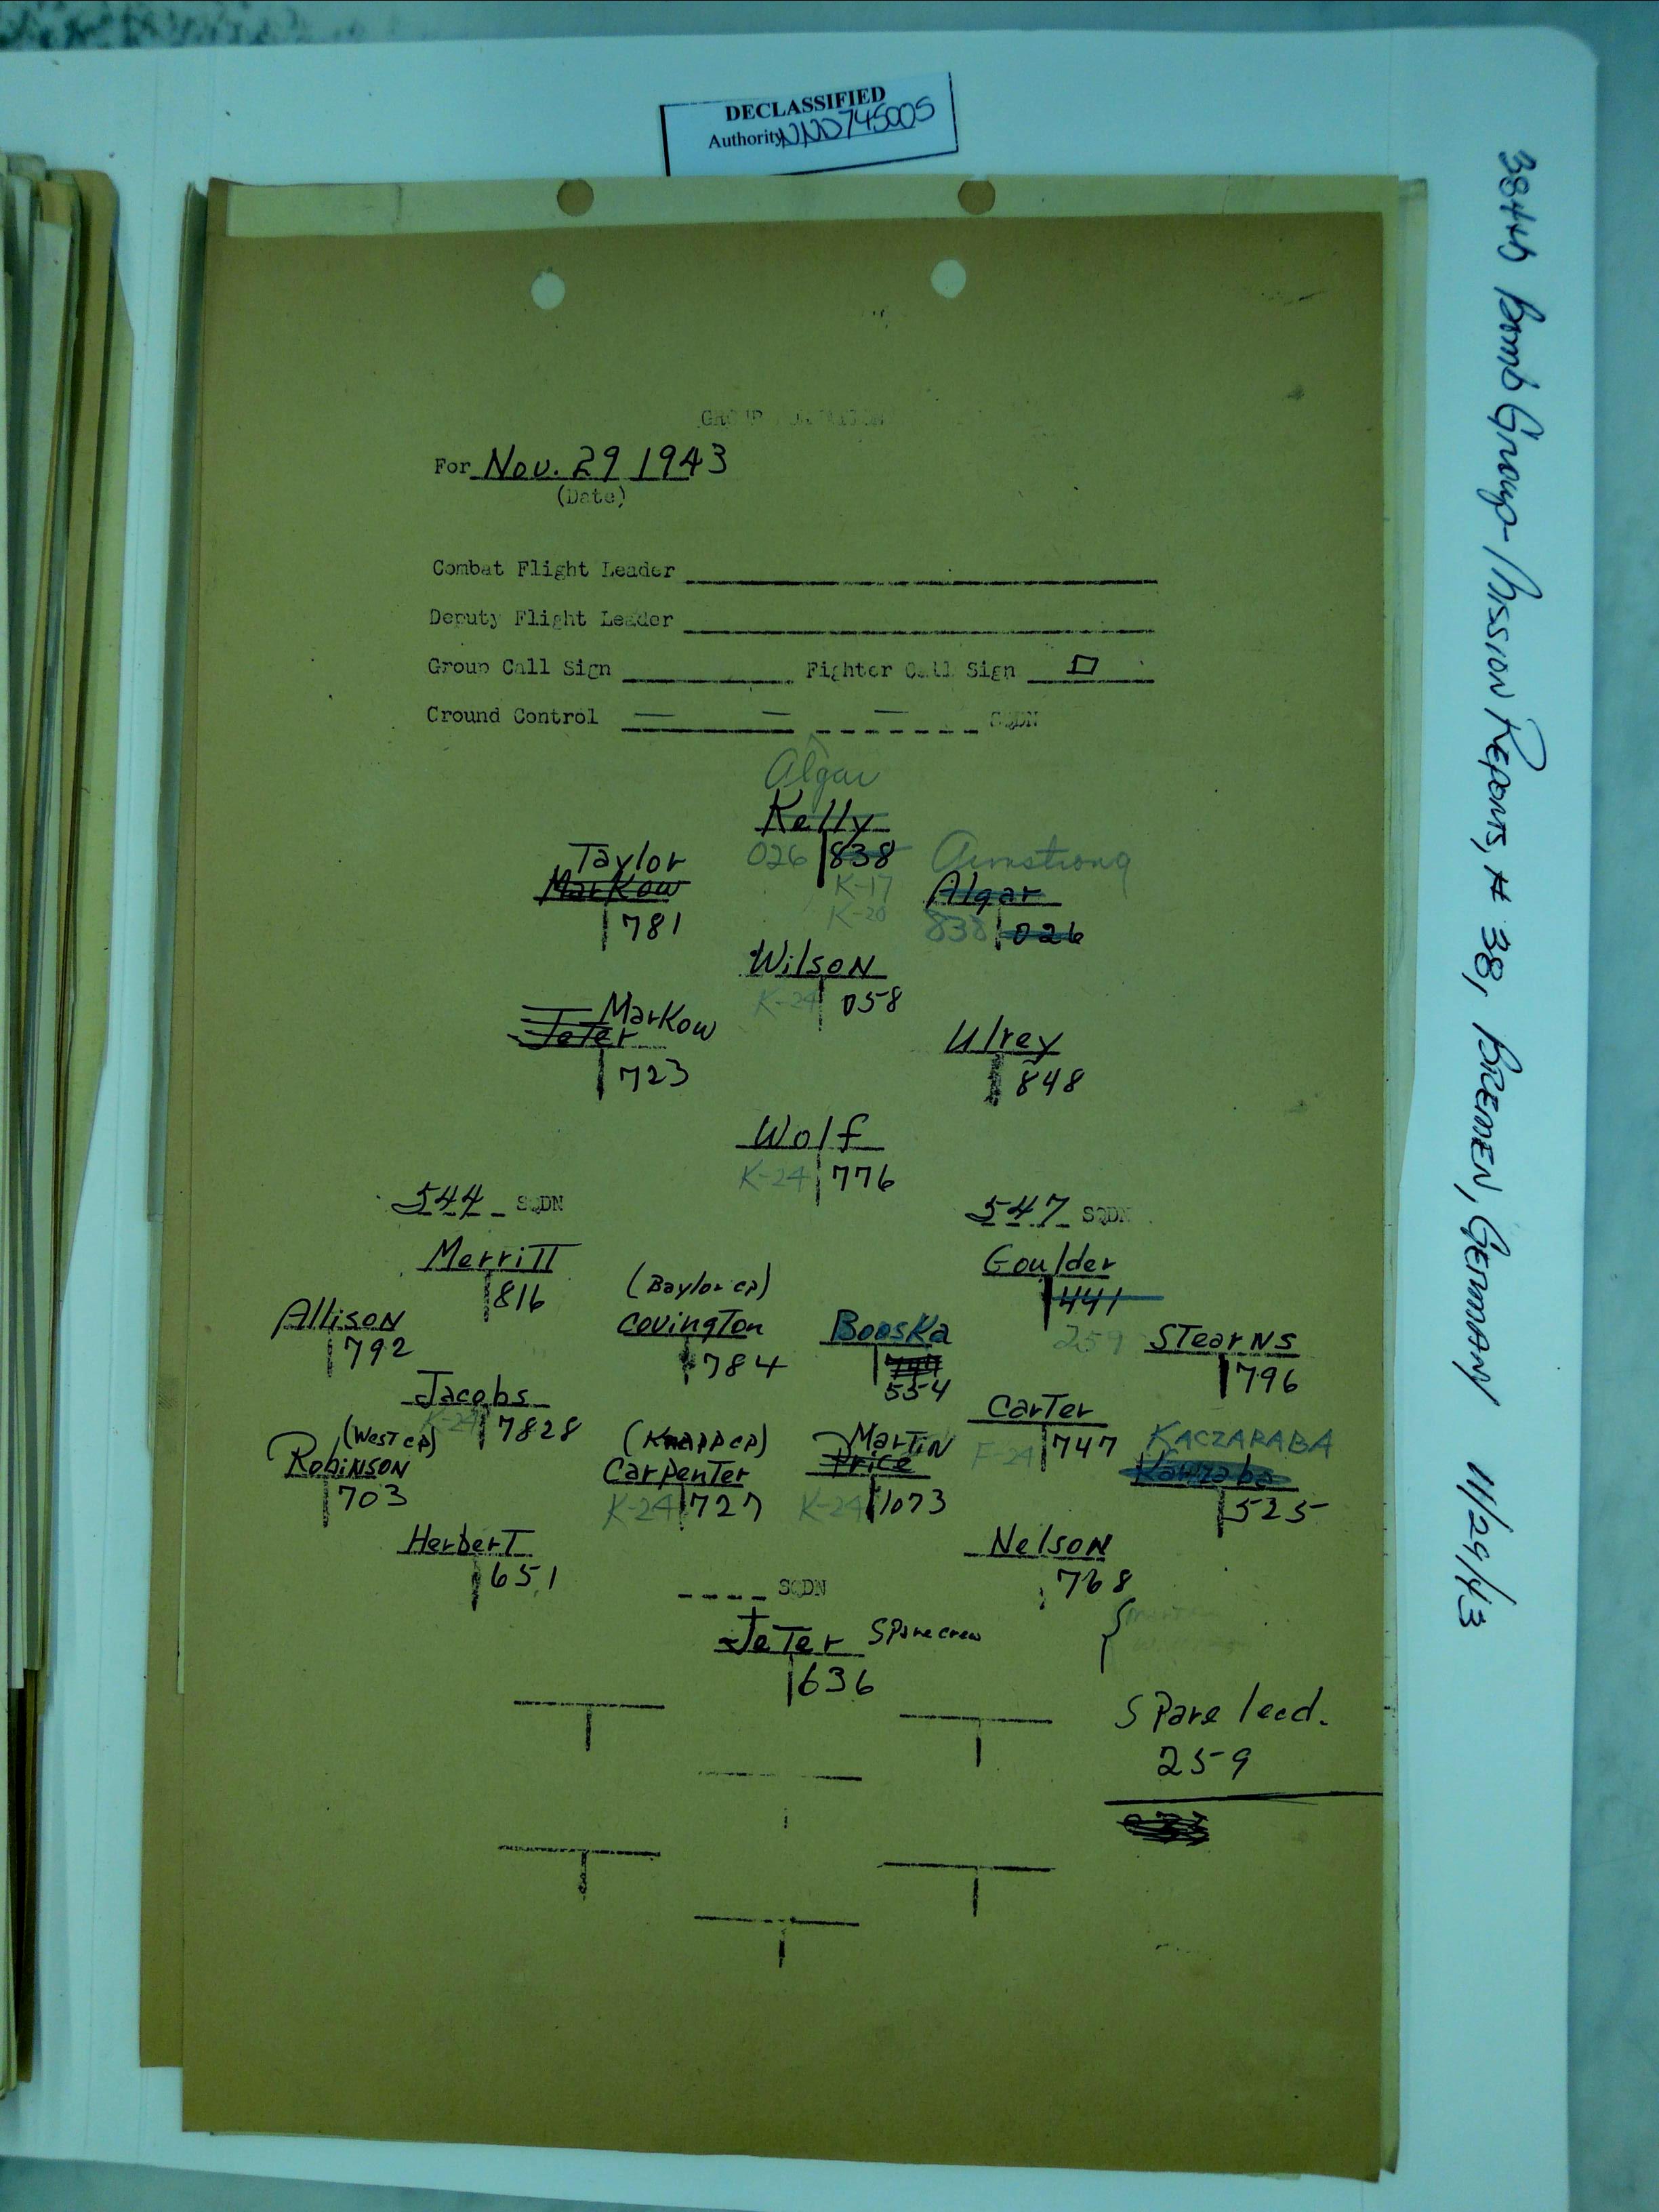 DECLASSIFIED
Authority NND745005
384th Bomb Group - Mission Reports, # 38, BREMEN, GERMANY 11/29/43
GROUP
For Nov. 29 1943
(Date)
Combat Flight Leader
Deputy Flight Leader
Group Call Sign Fighter Call Sign
Ground Control SQDN
Algar
Kelly
026 838
K-17
K-20
Taylor
Markow
781
Armstrong
Algar
838 026
Wilson
K-24 058
Markow
Jeter
723
Ulrey
848
Wolf
K-24 776
544 SQDN
547 SQDN
Merritt
816
Goulder
441
259
Allison
792
(Baylor CP)
Covington
784
Booska
554
Stearns
796
Jacobs
K-24 7828
Carter
F-24 747
(West CP)
Robinson
703
(Knapp CP)
Carpenter
K-24 727
Martin
Price
K-24 1073
KACZARABA
525
Herbert
651
Nelson
768
SQDN
Jeter Spare crew
636
Spare lead.
259